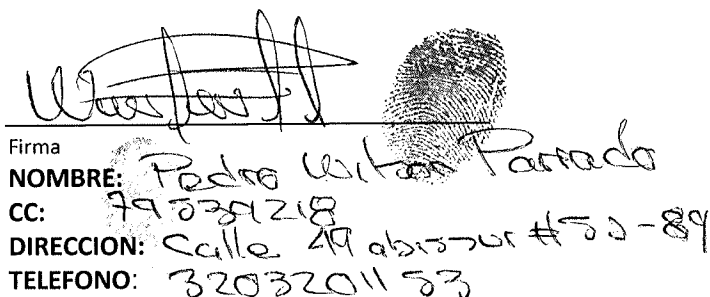 Firma
NOMBRE: Pedro Wilson Parrado
CC: 79539218
DIRECCION: Calle 49 sur # -89
TELEFONO: 3203201153